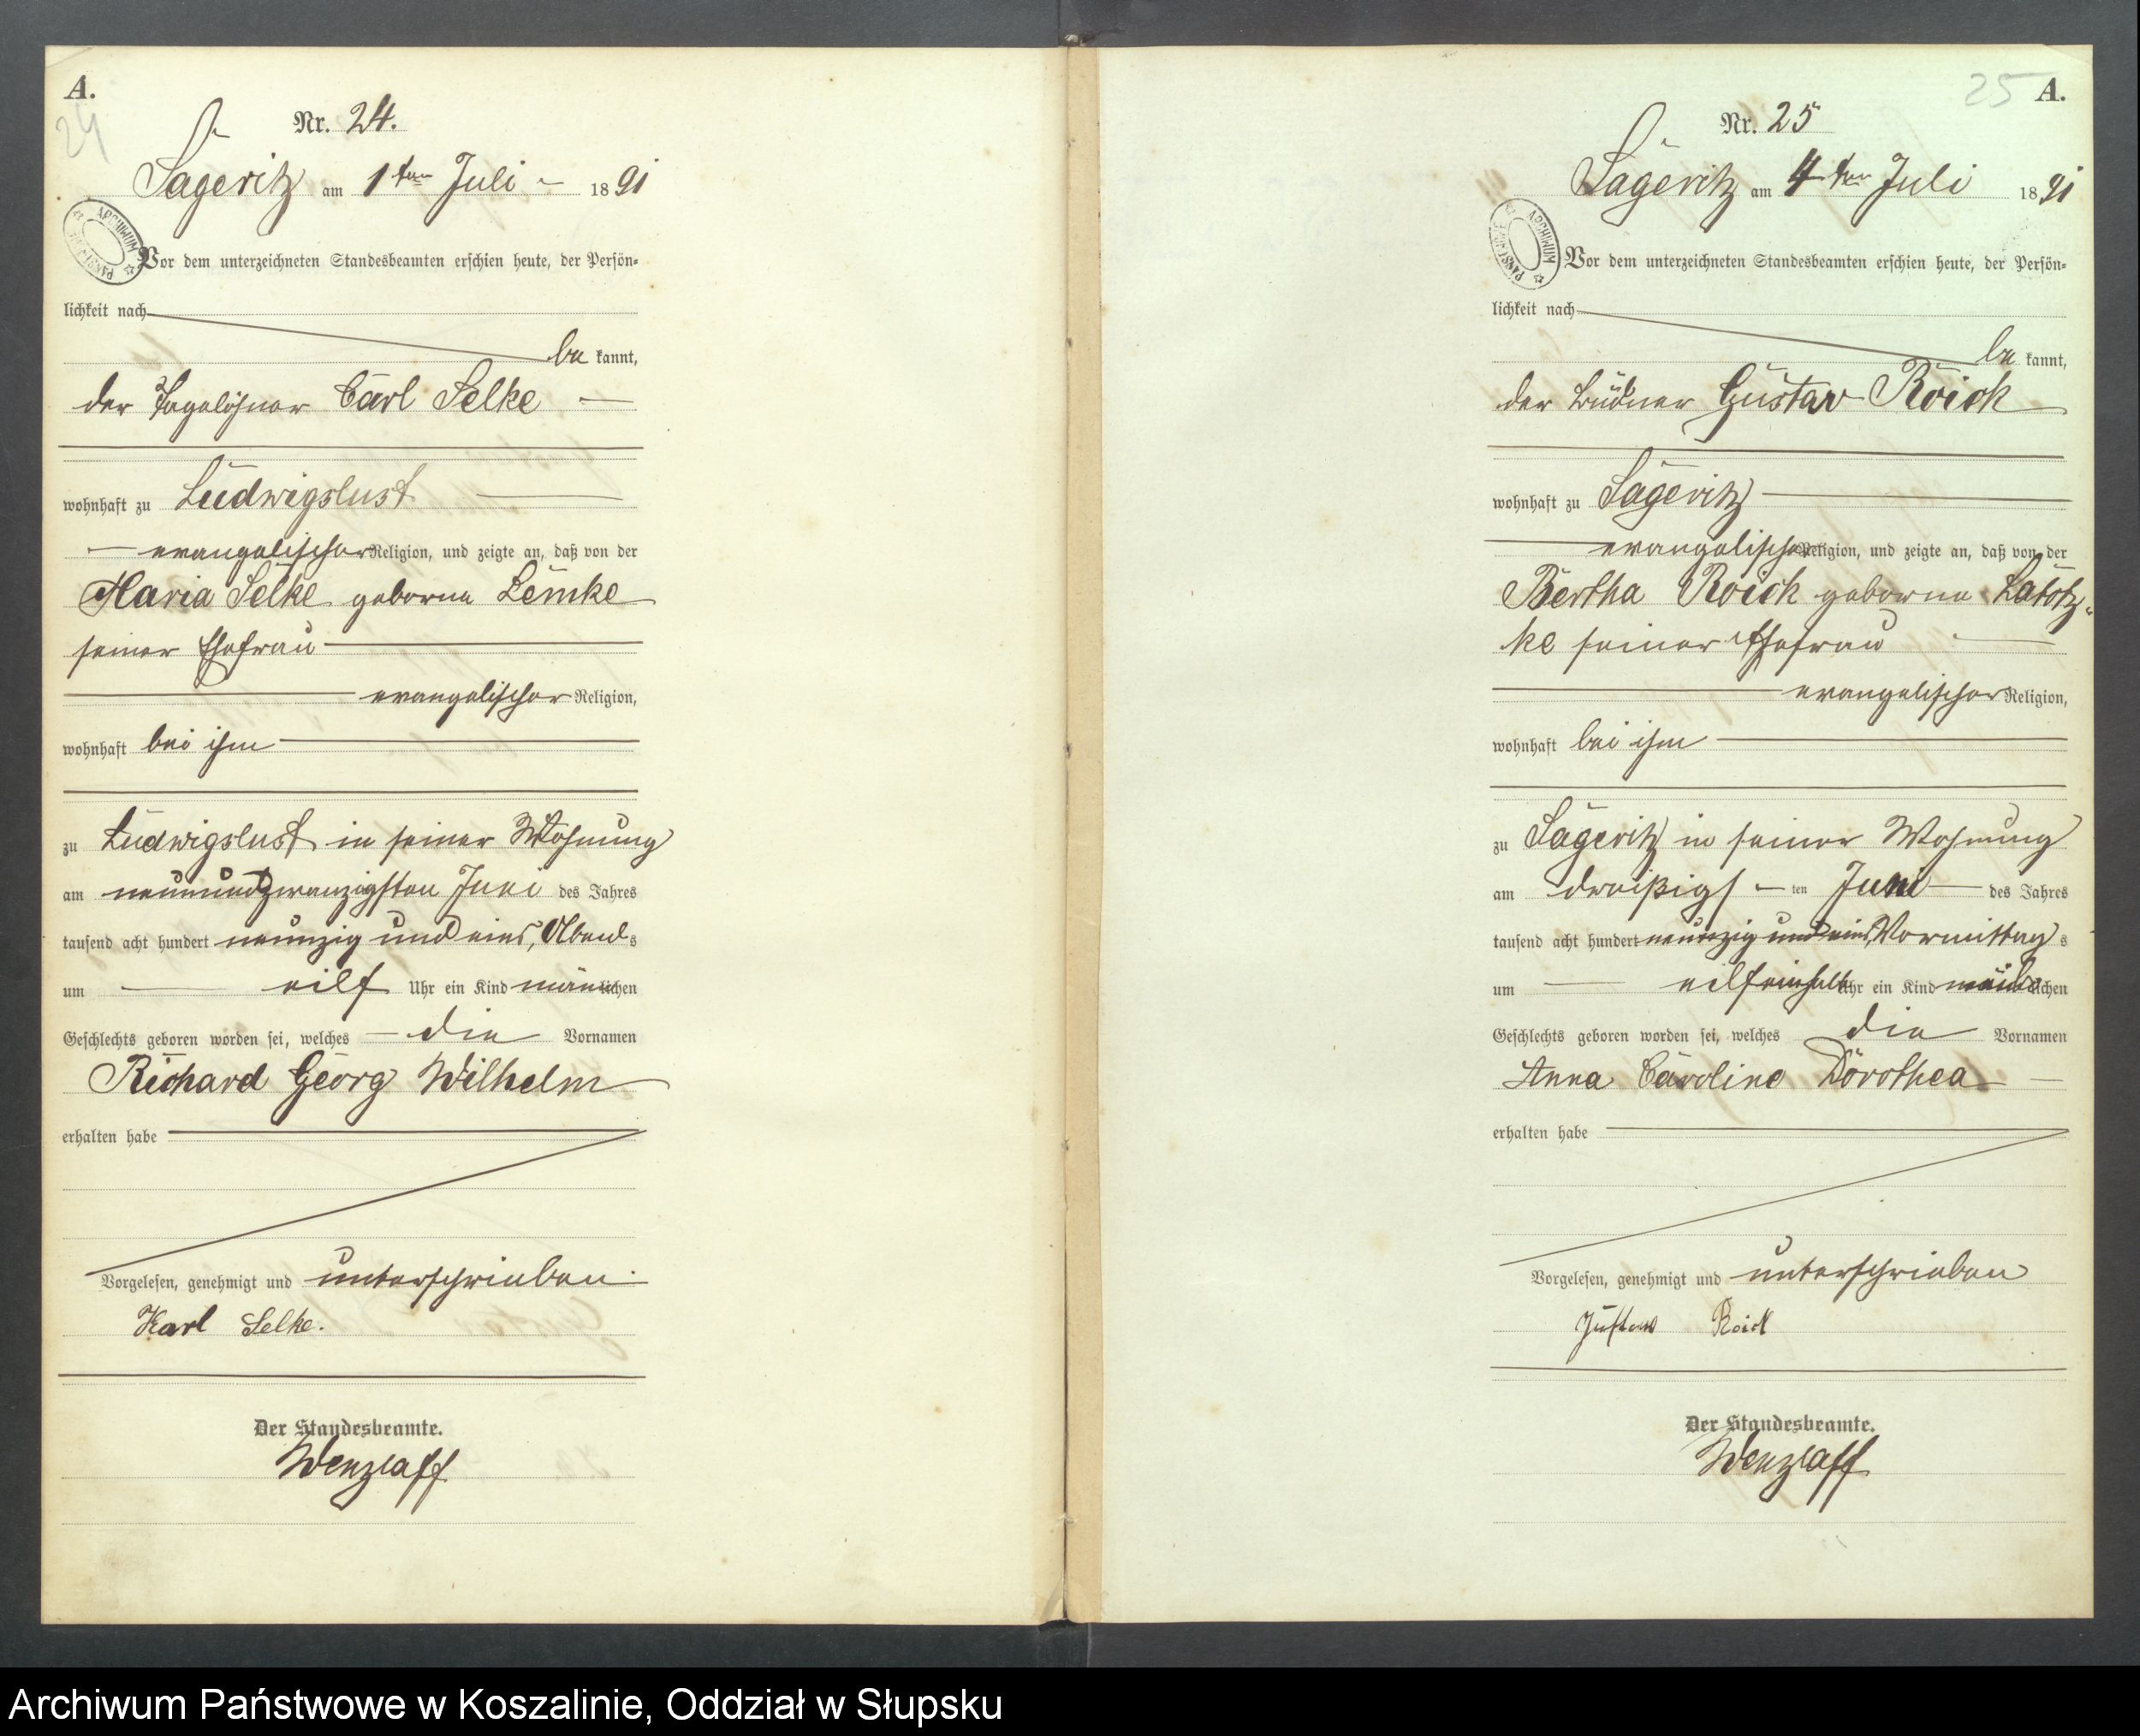 A.
24
Nr. 24.
Sageritz am 1ten Juli 1891
ARCHIWUM PAŃSTWOWE
Vor dem unterzeichneten Standesbeamten erschien heute, der Persön=
lichkeit nach
be kannt,
der Tagelöhner Carl Selke
wohnhaft zu Ludwigslust
evangelischer Religion, und zeigte an, daß von der
Maria Selke geborne Lemke
seiner Ehefrau
evangelischer Religion,
wohnhaft bei ihm
zu Ludwigslust in seiner Wohnung
am neunundzwanzigsten Juni des Jahres
tausend acht hundert neunzig und eins, Abends
um eilf Uhr ein Kind männlichen
Geschlechts geboren worden sei, welches die Vornamen
Richard Georg Wilhelm
erhalten habe
Vorgelesen, genehmigt und unterschrieben
Karl Selke.
Der Standesbeamte.
Wenzlaff
25 A.
Nr. 25
Sageritz am 4ten Juli 1891
ARCHIWUM PAŃSTWOWE
Vor dem unterzeichneten Standesbeamten erschien heute, der Persön=
lichkeit nach
be kannt,
der Büdner Gustav Roick
wohnhaft zu Sageritz
evangelischer Religion, und zeigte an, daß von der
Bertha Roick geborne Labotz-
ke seiner Ehefrau
evangelischer Religion,
wohnhaft bei ihm
zu Sageritz in seiner Wohnung
am dreißigs ten Juni des Jahres
tausend acht hundert neunzig und eins, Vormittags
um eilfeinhalb Uhr ein Kind weiblichen
Geschlechts geboren worden sei, welches die Vornamen
Anna Caroline Dorothea
erhalten habe
Vorgelesen, genehmigt und unterschrieben
Gustav Roick
Der Standesbeamte.
Wenzlaff
Archiwum Państwowe w Koszalinie, Oddział w Słupsku